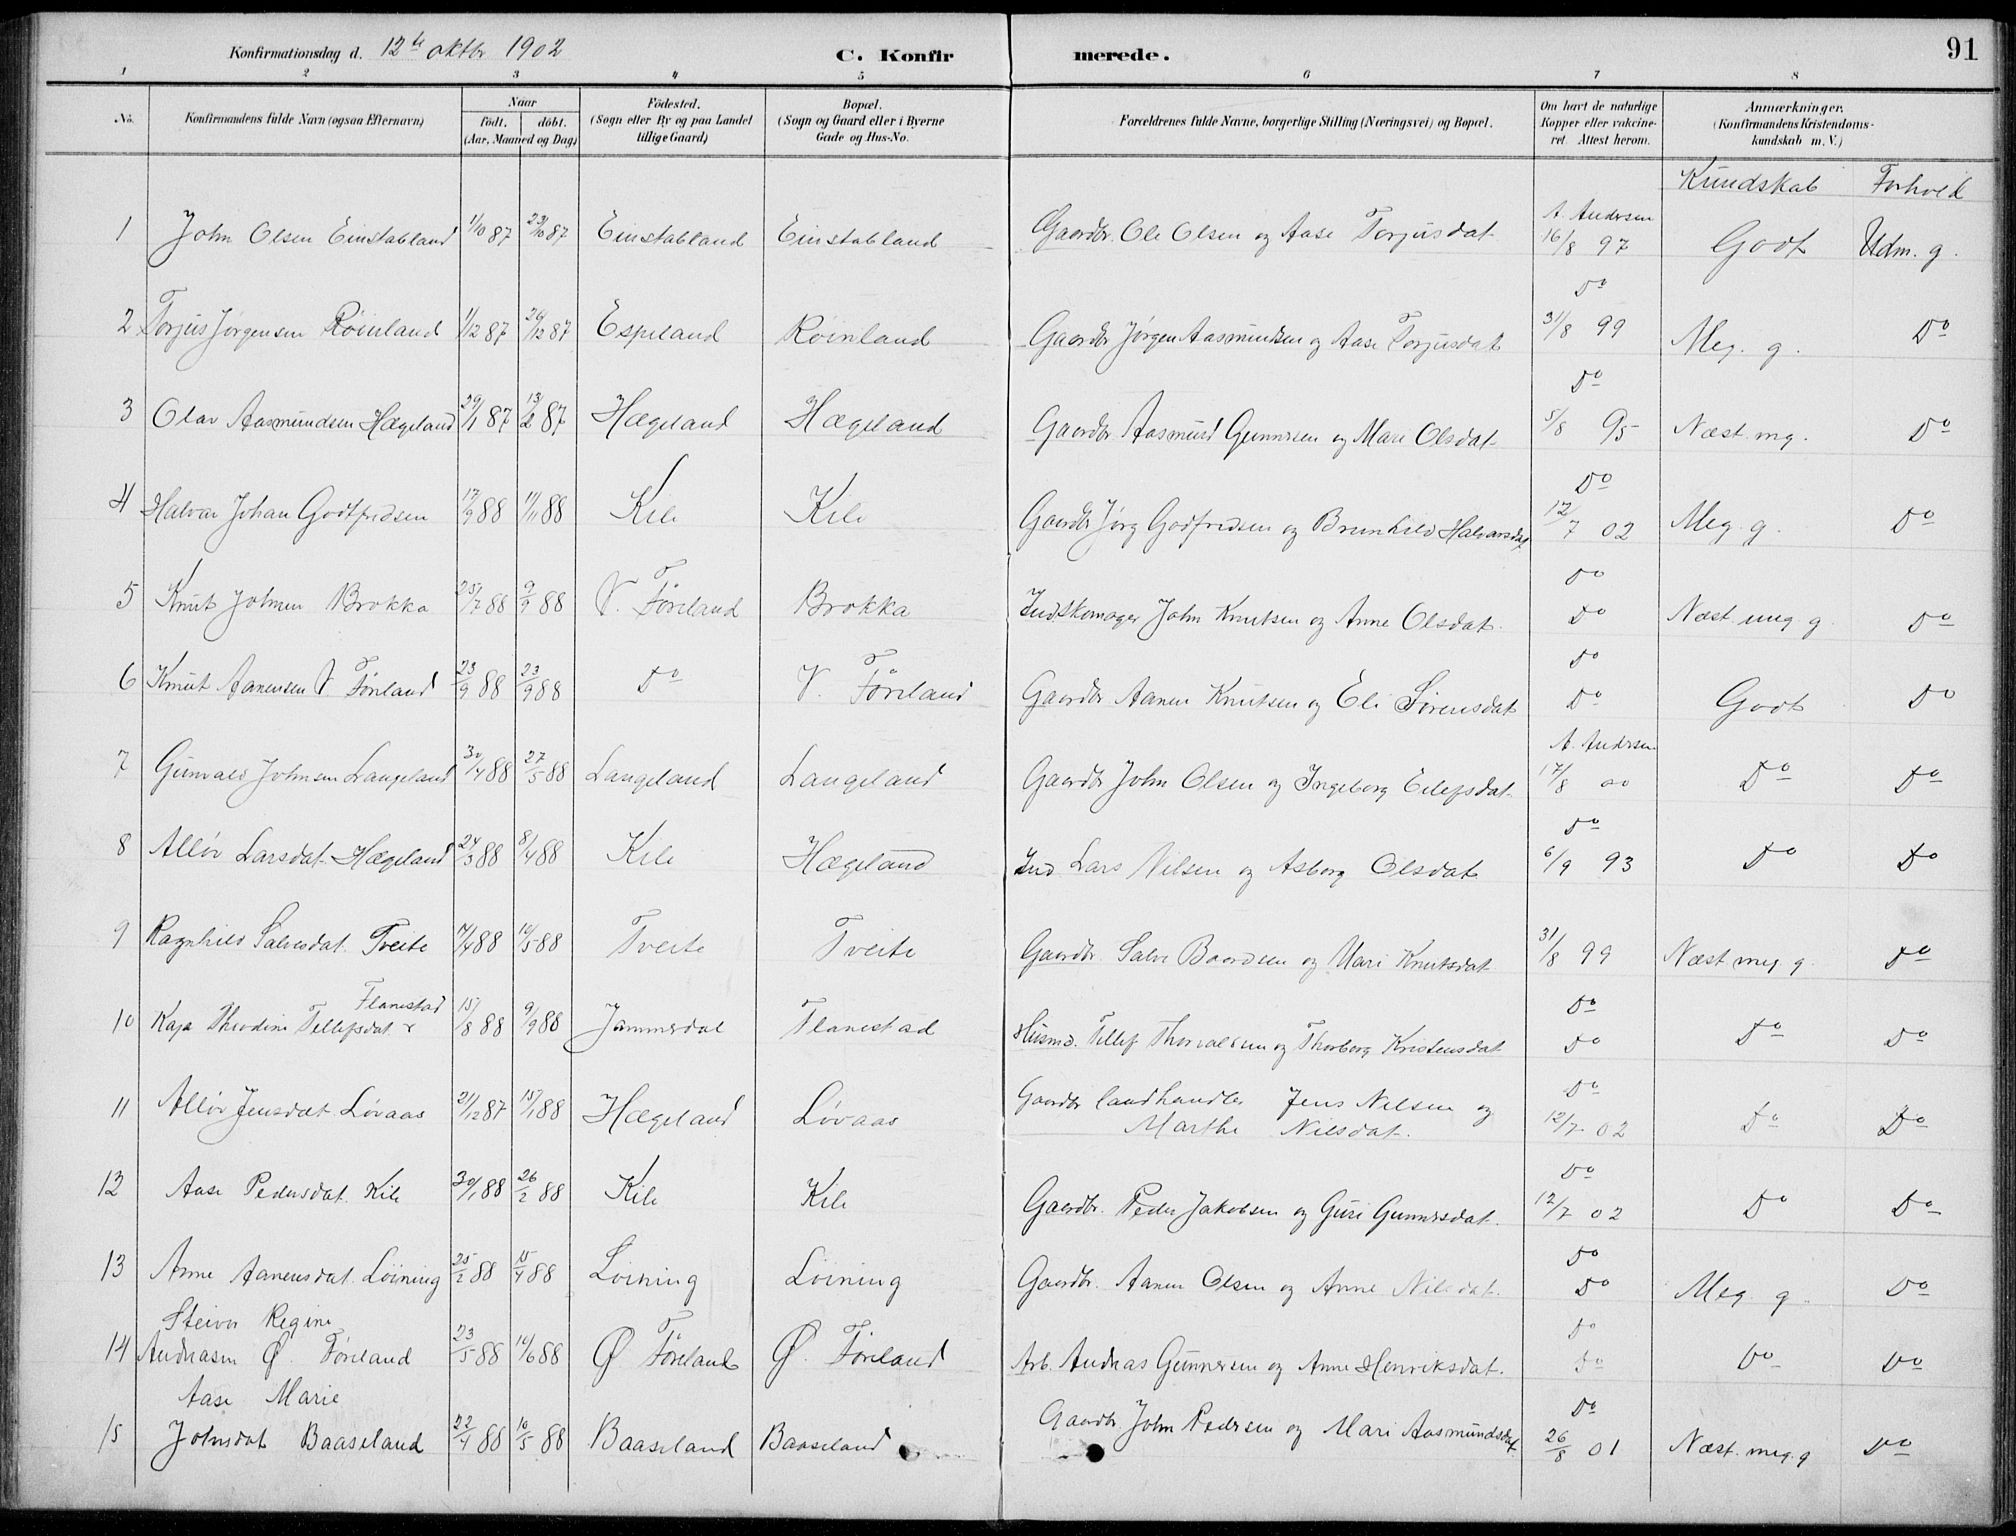 Konfirmationsdag d. 12te oktbr 1902 C. Konfir merede. 91
1 2 3 4 5 6 7 8
No. Konfirmandens fulde Navn (ogsaa Efternavn) Naar födt. döbt. (Aar, Maaned og Dag) Födested. (Sogn eller By og paa Landet tillige Gaard) Bopæl. (Sogn og Gaard eller i Byerne Gade og Hus-No. Forældrenes fulde Navne, borgerlige Stilling (Næringsvei) og Bopæl. Om havt de naturlige Kopper eller vakcineret. Attest herom. Anmærkninger. (Konfirmandens Kristendomskundskab m. V.)
Kundskab Forhold
1 John Olsen Einstabland 1/10 87 23/10 87 Einstabland Einstabland Gaardbr. Ole Olsen og Aase Torjusdat A. Andersen 16/8 97 Godt Udm. g.
2 Torjus Jørgensen Røinland 1/12 87 26/12 87 Espeland Røinland Gaardbr Jørgen Aasmundsen og Aase Torjusdat Do 31/8 99 Meg. g. Do
3 Olav Aasmundsen Hægeland 29/1 87 13/2 87 Hægeland Hægeland Gaardbr. Aasmund Gunnersen og Mari Olsdat Do 5/8 95 Næst. mg. Do
4 Halvor Johan Godtfredsen 17/9 88 11/11 88 Kile Kile Gaardbr Jørg Godfredsen og Brunhild Halvorsdat Do 12/7 02 Meg. g. Do
5 Knut Johnsen Brokka 25/7 88 9/9 88 V. Føreland Brokka Ind. Skomager John Knutsen og Anne Olsdat. Do Do Næst meg g Do
6 Knut Aanensen V Føreland 23/9 88 23/9 88 Do V. Føreland Gaardbr Aanen Knutsen og Eli Sørensdat Do Do Godt Do
7 Gunvald Johnsen Langeland 30/4 88 27/5 88 Langeland Langeland Gaardbr John Olsen og Ingeborg Eilefsdat A. Andersen 17/8 00 Do Do
8 Alløv Larsdat Hægeland 24/3 88 8/4 88 Kile Hægeland Ind Lars Nilsen og Asborg Olsdat Do 6/9 93 Do Do
9 Ragnhild Salvesdat. Tveite 7/4 88 10/5 88 Tveite Tveite Gaardbr. Salve Baardsen og Mari Knutsdat 31/8 99 Næst meg. g. Do
10 Kaja Theodine Tellefsdat Flanestad 15/8 88 9/9 88 Jammerdal Flanestad Husmd. Tellef Thorvaldsen og Thorborg Kristensdat Do Do Do Do
11 Alløv Jensdat Løvaas 21/12 87 15/1 88 Hægeland Løvaas Gaardbr landhandler Jens Nilsen og
Marthe Nilsdat. Do 12/7 02 Do Do
12 Aase Pedersdat. Kile 30/1 88 26/2 88 Kile Kile Gaardbr. Peder Jakobsen og Guri Gunnersdat. Do 12/7 02 Do Do
13 Anne Aanensdat. Løining 25/2 88 15/4 88 Løining Løining Gaardbr. Aanen Olsen og Anne Nilsdat. Do Do Meg. g. Do
Regine
14 Andreasen Ø. Føreland 23/5 88 10/6 88 Ø Føreland Ø. Føreland Arb. Andreas Gunnersen og Anne Henriksdat. Do Do Do Do
Aase Marie
15 Johnsdat Baaseland 22/4 88 10/5 88 Baaseland Baaseland Gaardbr. John Pedersen og Mari Aasmundsdat. Do 26/8 01 Næst. meg. g Do